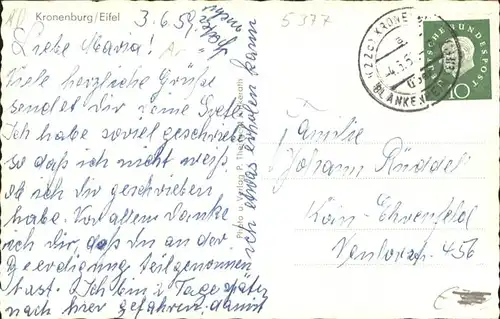 Kronenburg/Eifel
3.6.59
5377
Liebe Maria!
Viele herzliche Grüße
sendet Dir Deine
Ich habe soviel geschrieben
so daß ich nicht weiß
ob ich Dir geschrieben
habe. Vor allem danke
ich Dir, daß Du an der
Beerdigung teilgenommen
hast. Ich bin 2 Tage später
nach hier gefahren, damit
ich etwas erholen kann
Photo u. Verlag P.
DEUTSCHE BUNDESPOST
10
BLANKENHEIM
(EIFEL)
Familie
Johann Rüddel
Köln-Ehrenfeld
Venloerstr. 456